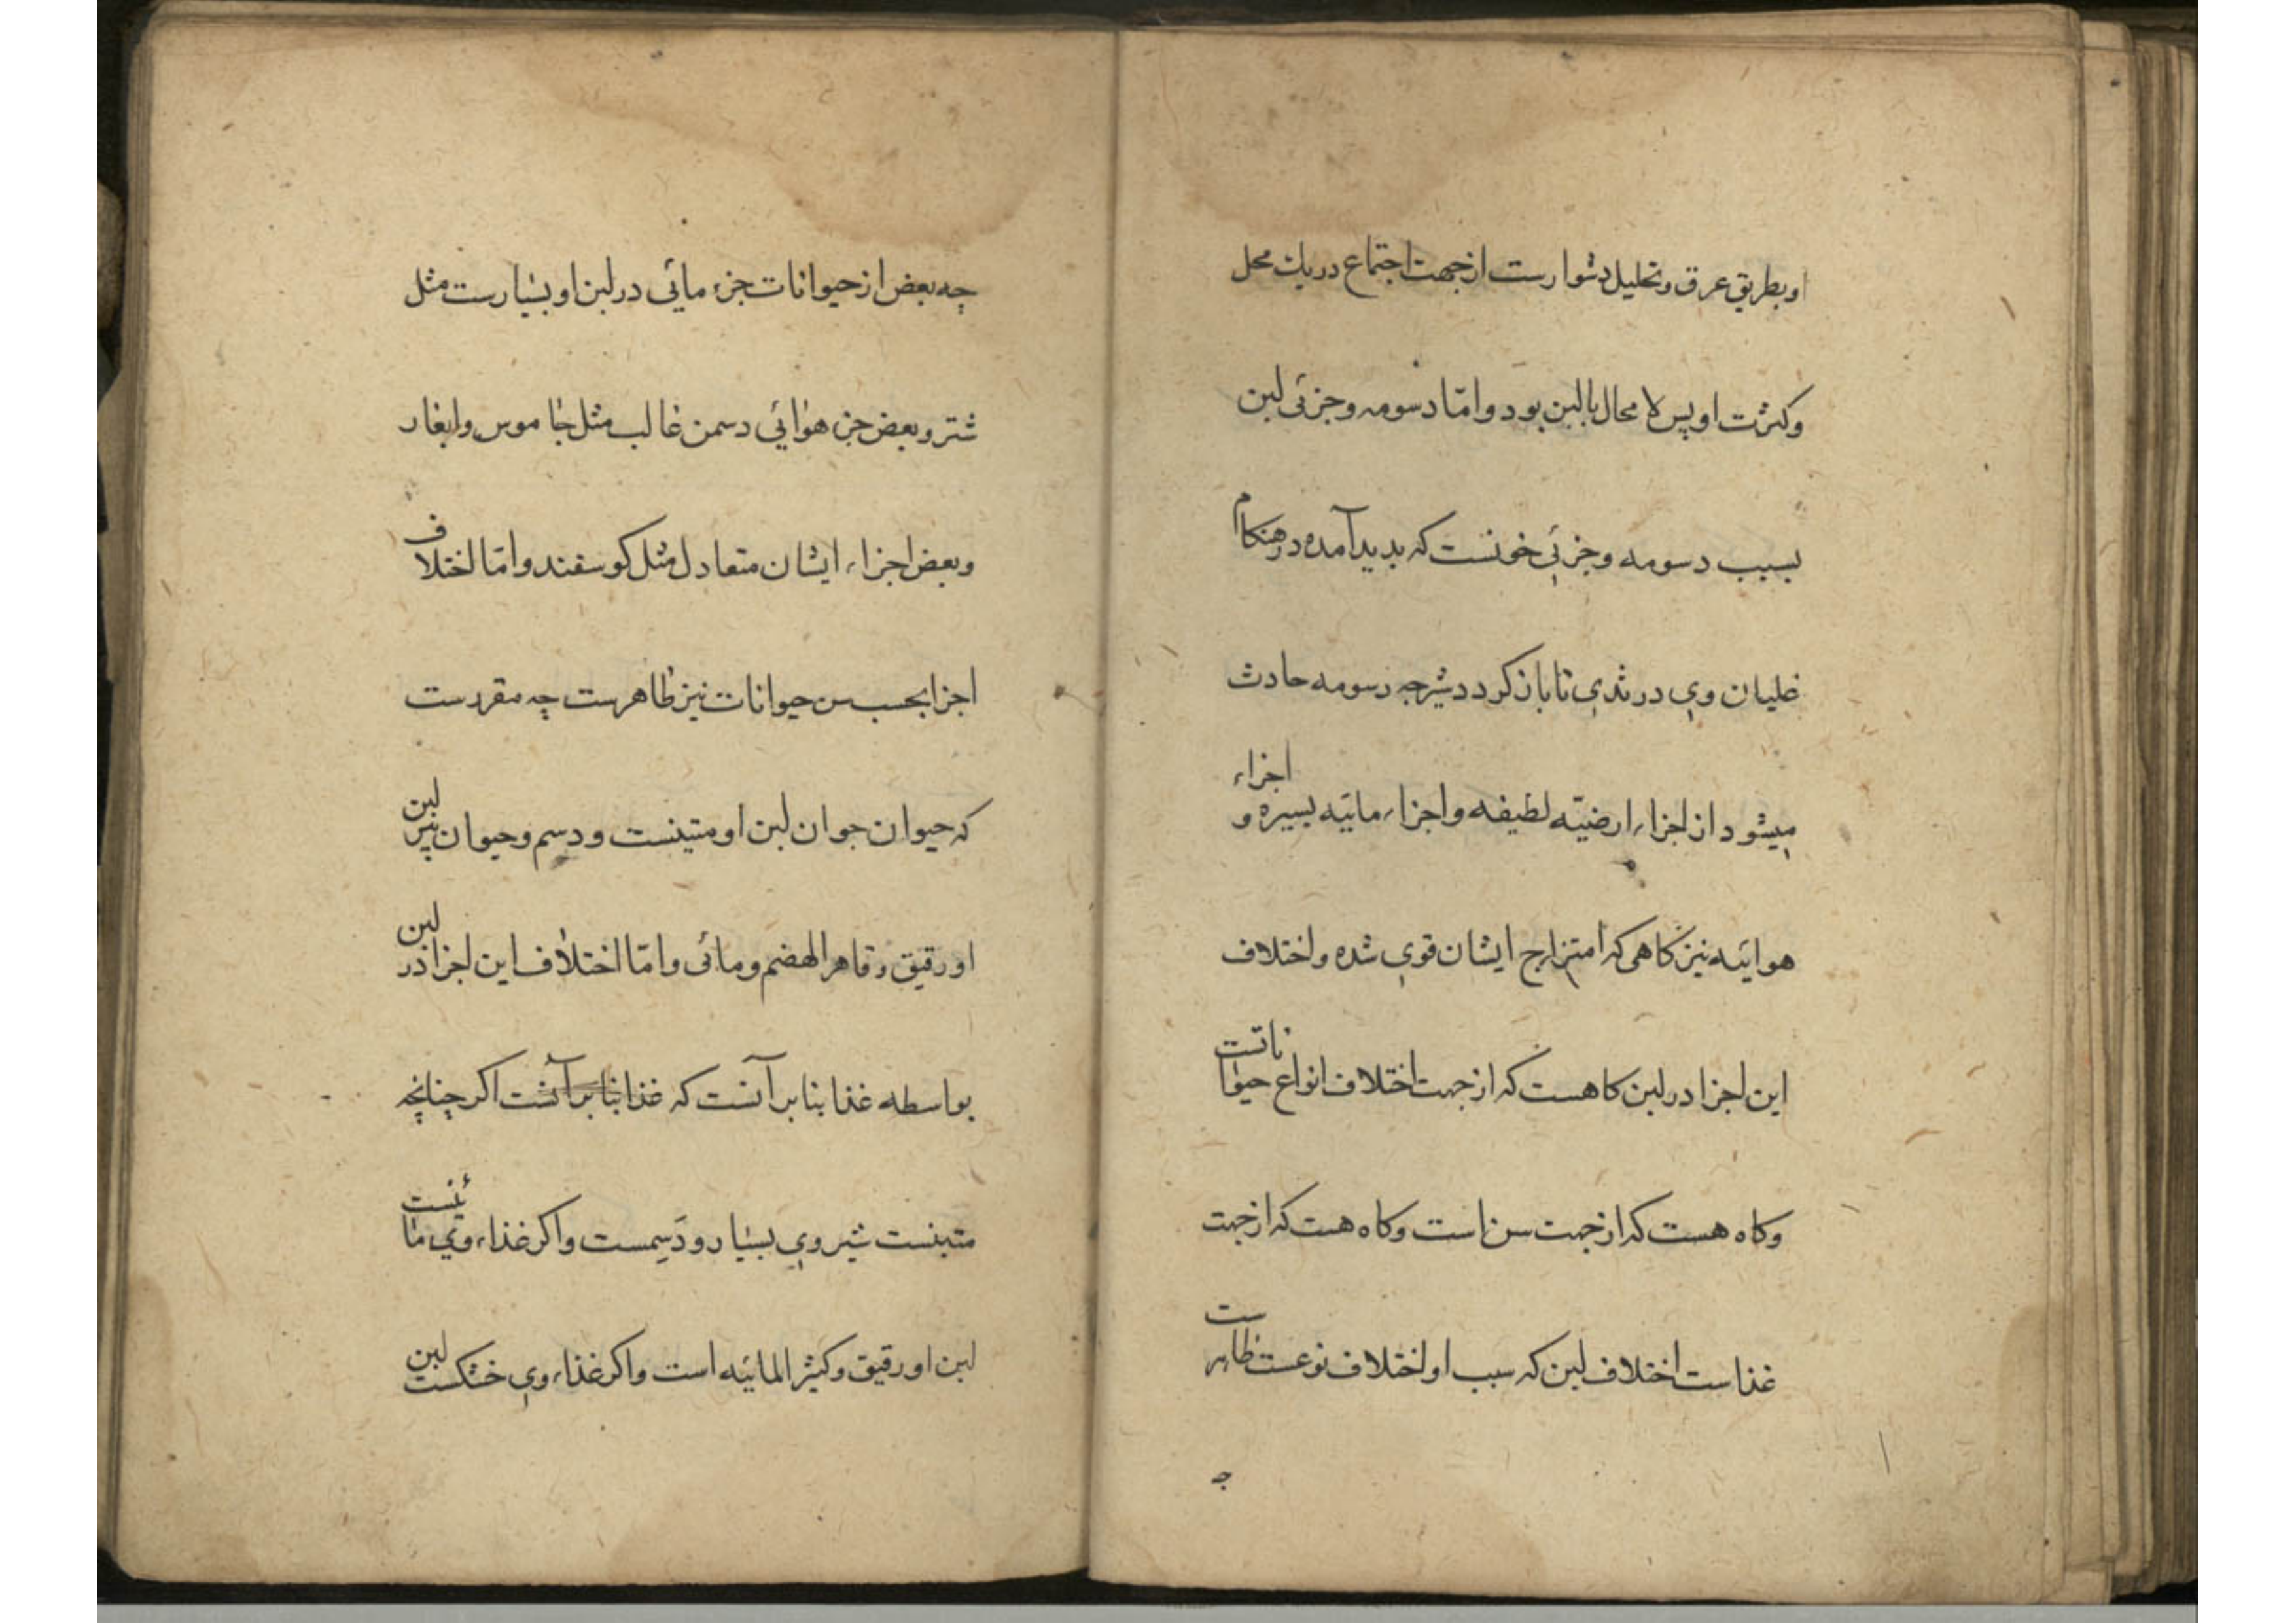 او بطریق عرق و تحلیل دشوارست از جهت اجتماع در یك محل
و کثرت او پس لا محال بالبن بود و امّا دسومه و جزئی لبن
بسبب دسومه و جزئی خونست که بدید آمده در هنکام
غلیان وی در ثدی تا باز کردد شیر چه دسومه حادث
میشود از اجزاء ارضیّه لطیفه و اجزاء مائیه یسیره و اجزاء
هوائیه نیز کاهی که امتزاج ایشان قوی شده و اختلاف
این اجزا در لبن کاهست که از جهت اختلاف انواع حیواناتست
و کاه هست که از جهت سن است و کاه هست که از جهت
غذاست اختلاف لبن که سبب او اختلاف نوعست ظاهرست
چه
چه بعض از حیوانات جزء مائی در لبن او بسیارست مثل
شتر و بعض جزء هوائی دسمن غالب مثل جاموس و ابغار
و بعض اجزاء ایشان متعادل مثل کوسفند و امّا اختلاف
اجزا بحسب سن حیوانات نیز ظاهرست چه مقررست
که حیوان جوان لبن او متینست و دسم و حیوان پیر لبن
او رقیق و قاهر الهضم و مائی و امّا اختلاف این اجزا در لبن
بواسطه غذا بنا بر آنست که غذا بنا بر آنست اکر چنانچه
متینست شیر وی بسیار و دَسِمست و اکر غذاء وی مائینست
لبن او رقیق و کثیر المائیه است و اکر غذاء وی خشکست لبن